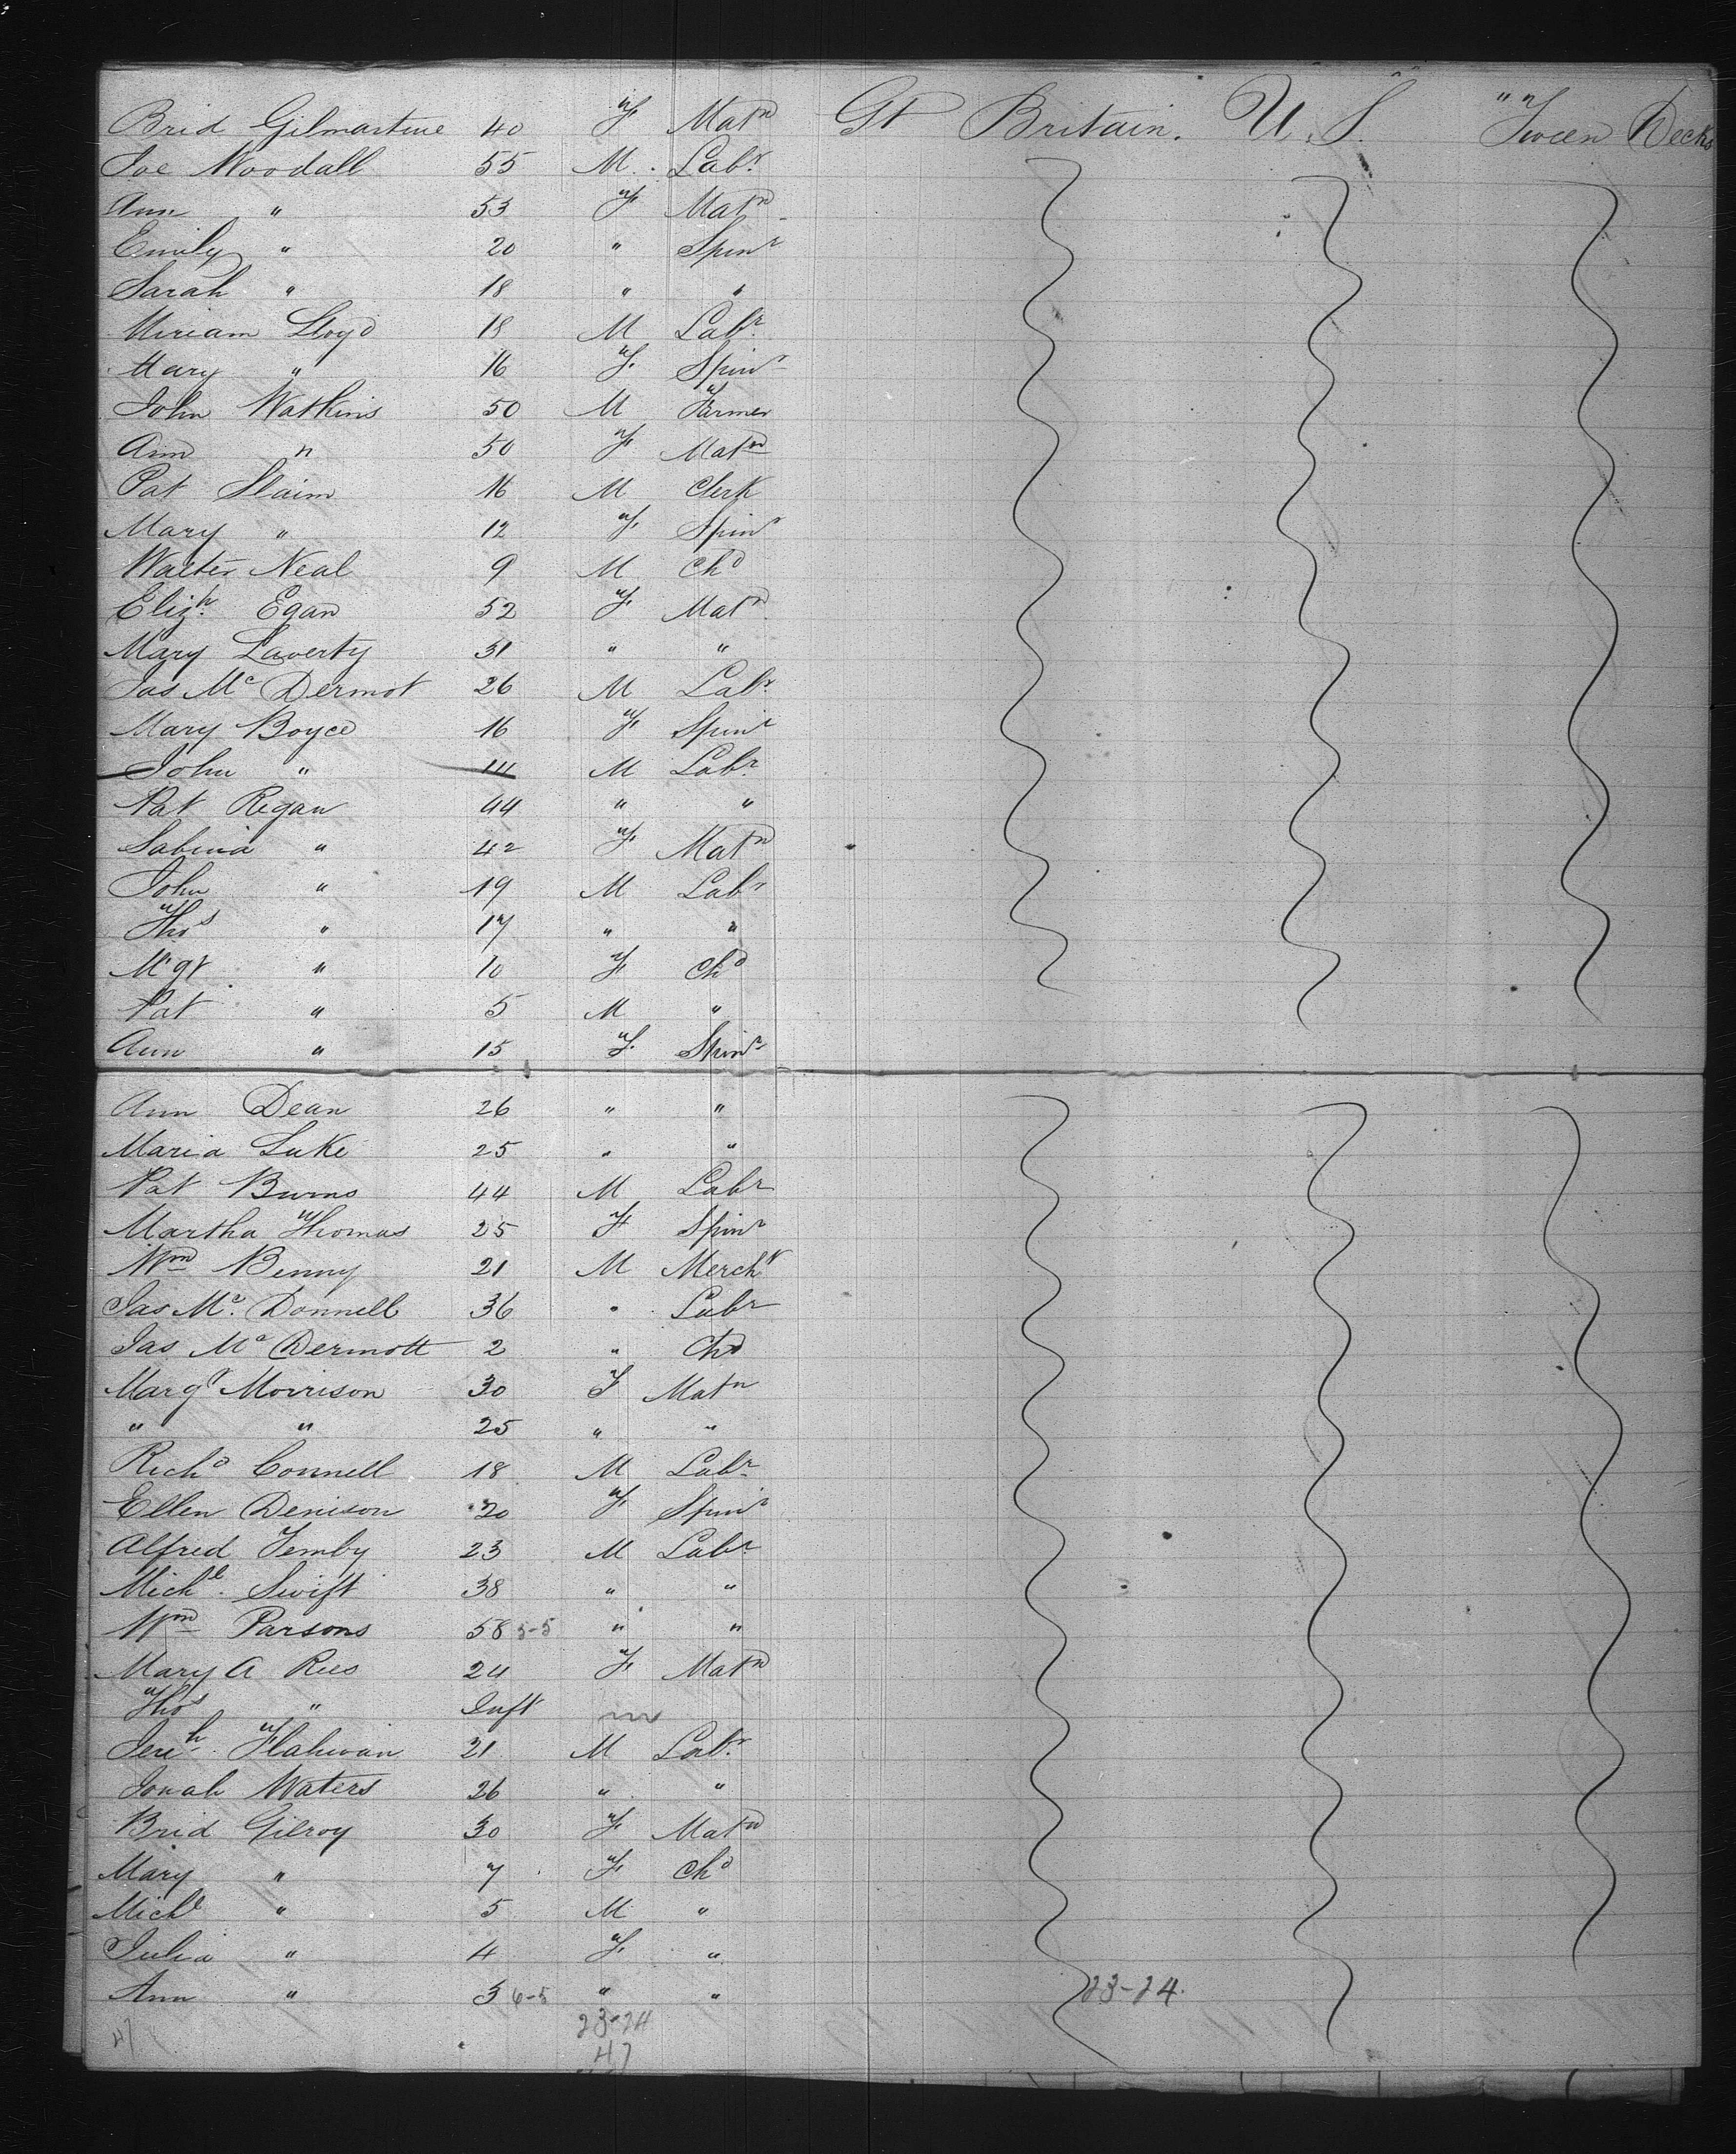 Brid Gilmartine 40 F Matn Gt Britain. U.S. "Tween Decks
Joe Woodall 55 M. Labr
Ann " 53 F Matn
Emily " 20 " Spinr
Sarah " 18 " "
Miriam Lloyd 18 M Labr
Mary " 16 F. Spinr
John Watkins 50 M Farmer
Ann " 50 F Matn
Pat Slaim 16 M Clerk
Mary " 12 F Spinr
Walter Neal 9 M Chd
Elizh Egan 52 F Matn
Mary Laverty 31 " "
Jas Mc Dermot 26 M Labr
Mary Boyce 16 F Spinr
John " 14 M Labr
Pat Regan 44 " "
Sabina " 42 F Matn
John " 19 M Labr
Thos " 17 " "
Mgt " 10 F Chd
Pat " 5 M "
Ann " 15 F. Spinr
Ann Dean 26 " "
Maria Luke 25 " "
Pat Burns 44 M Labr
Martha Thomas 25 F Spinr
Wm Benny 21 M Mercht
Jas Mc Donnell 36 " Labr
Jas Mc Dermott 2 " Chd
Margt Morrison 30 F Matn
" " 25 " "
Richd Connell 18 M Labr
Ellen Denison 20 F Spinr
Alfred Temby 23 M Labr
Michl Swift 38 " "
Wm Parsons 58 5-5 " "
Mary A Rees 24 F Matn
Thos " Inft m
Jereh Flahivan 21 M Labr
Jonah Waters 26 " "
Brid Gilroy 30 F Matn
Mary " 7 F Chd
Michl " 5 M "
Julia " 4 F "
Ann " 3 6-5 " " 23-24.
23-24
47 47